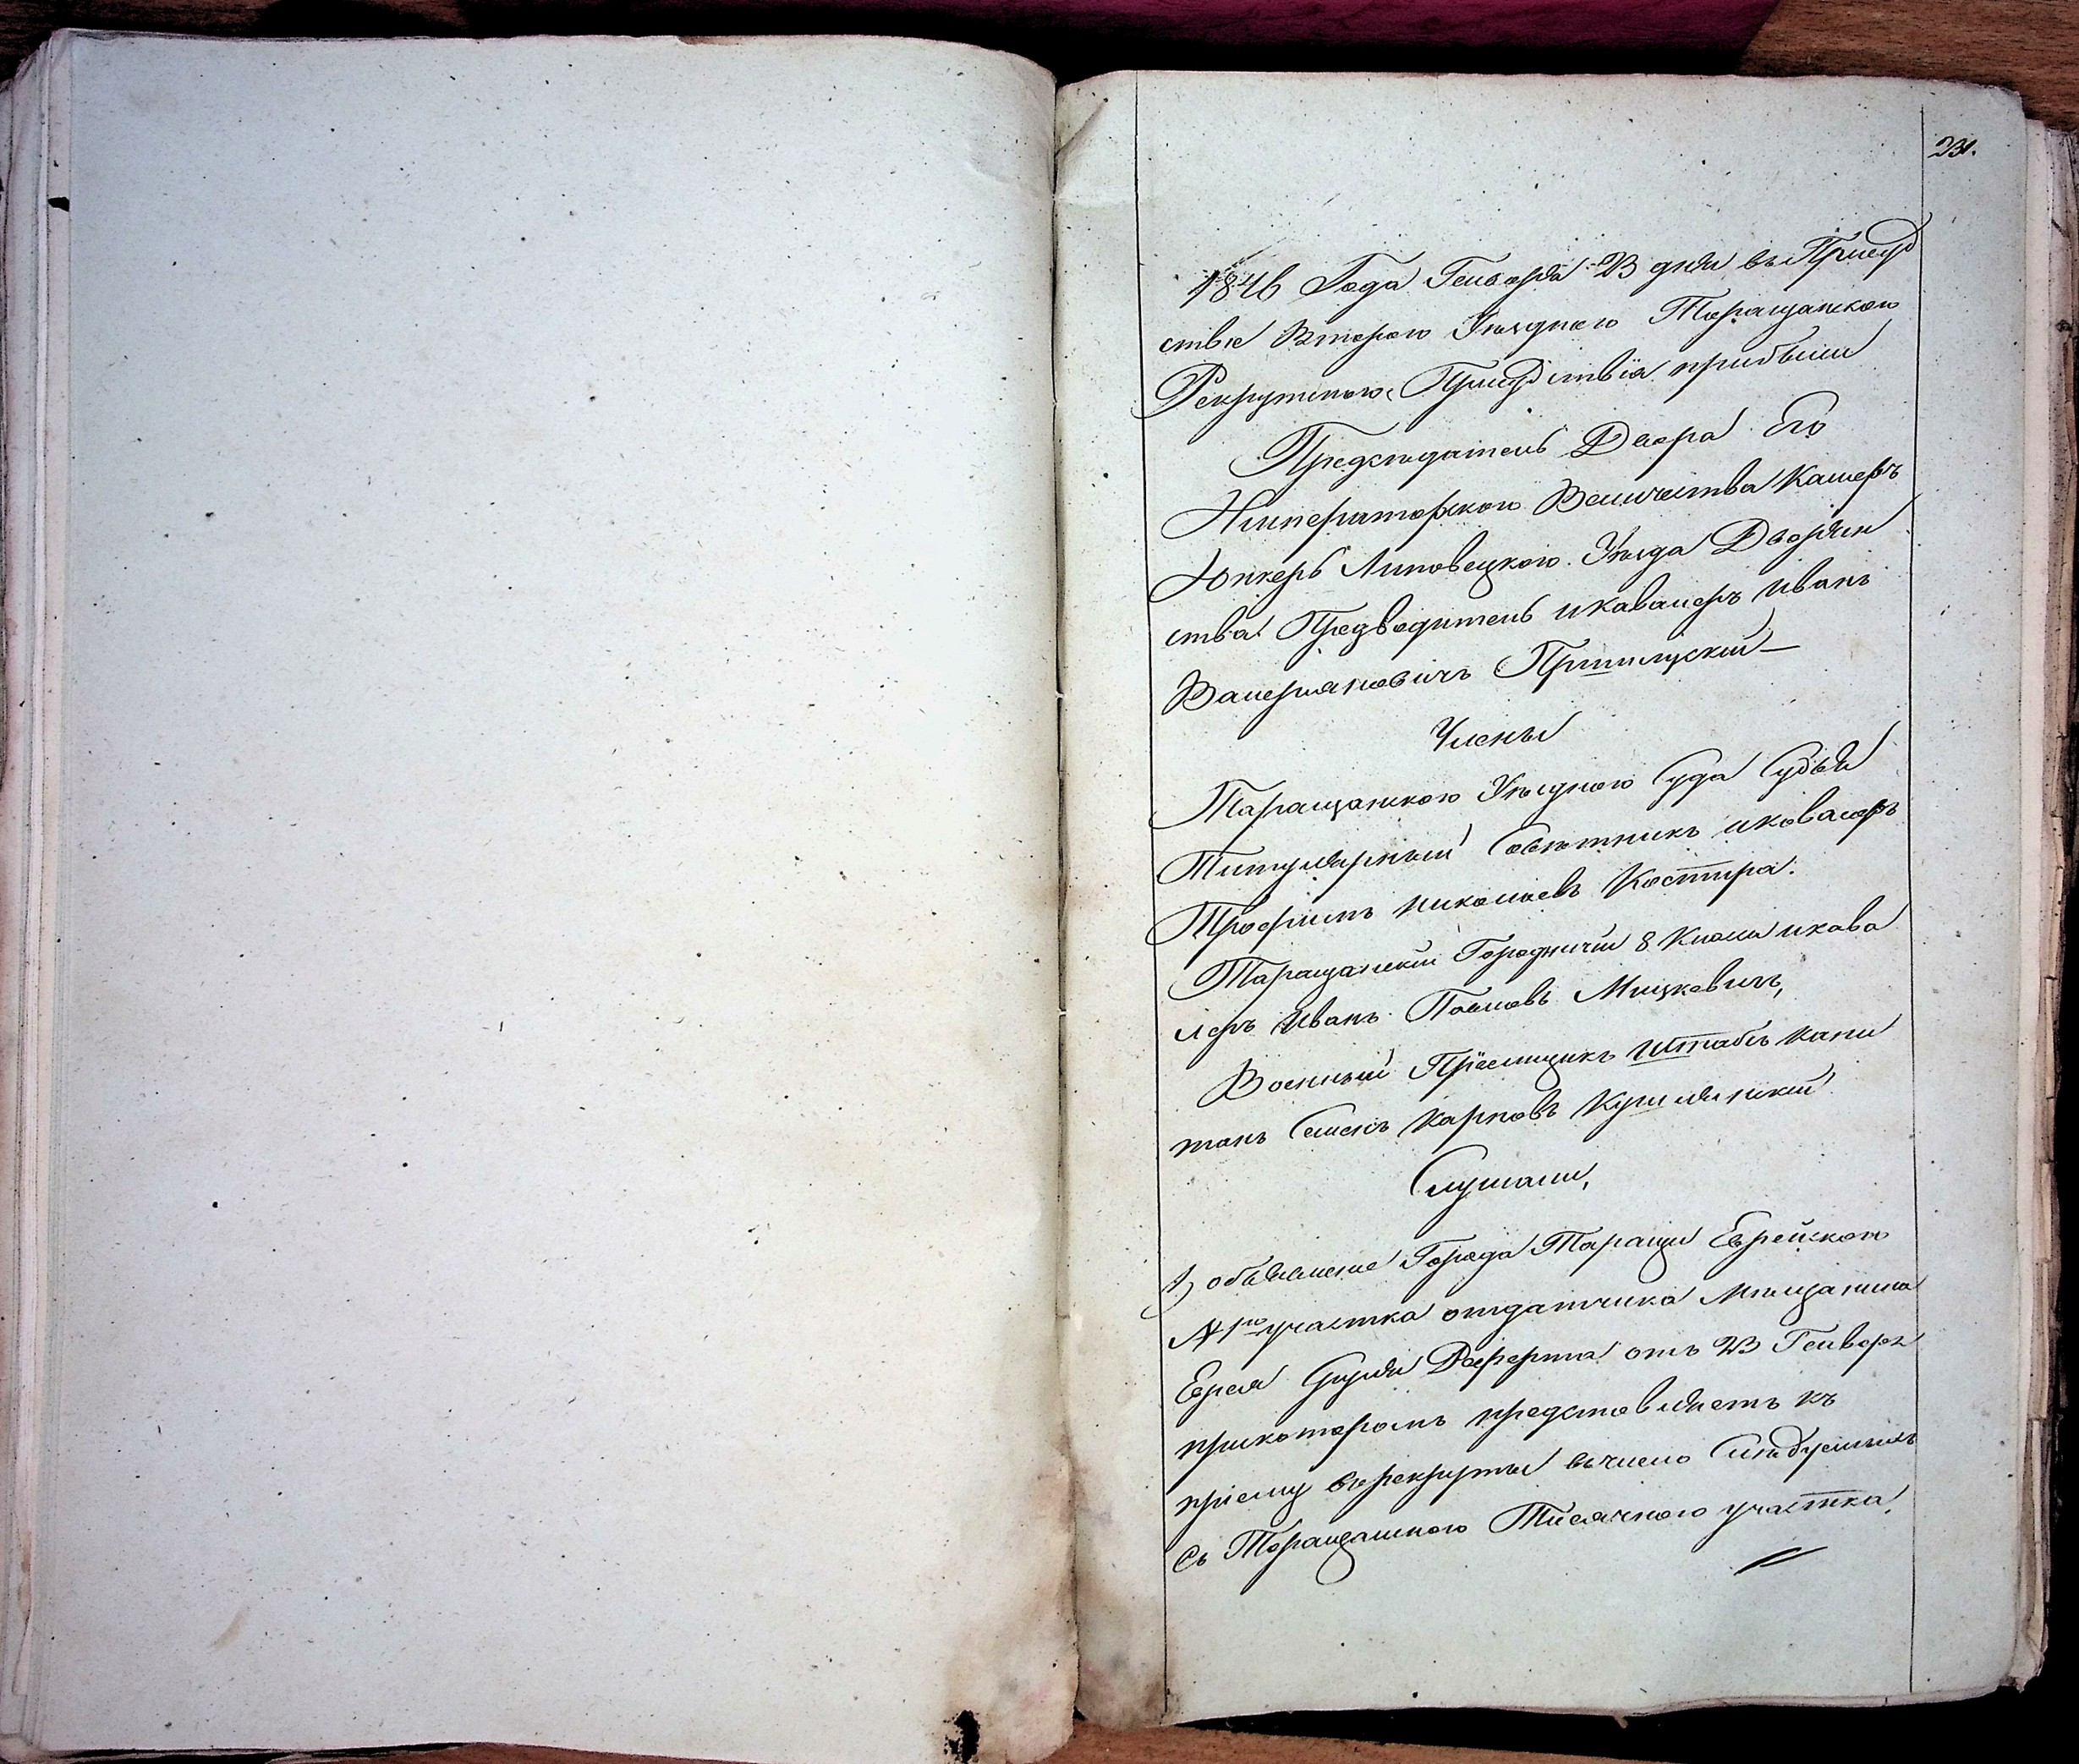 231.
1846 Года Генваря 23 дня въ Присуд
ствіе Втораго Уѣзднаго Таращанского
Рекрутского Присудствія прибыли
Предсѣдатель Двора Его
Императорского Величества Камеръ
Юнкеръ Липовецкого Уѣзда Дворян
ства Предводитель икавалеръ Иванъ
Валеріяновичъ
Члены
Таращанского Уѣздного Суда Судья
Титулярный Совѣтникъ иковалеръ
Трофимъ Николаевъ Костыра.
Таращанскій Городничій 8 Класа икава
леръ Иванъ Павловъ Мицкевичъ,
Военный Пріемщикъ Штабсъ Капи
танъ Семенъ Карповъ
Слушали,
1) объявленіе Города Таращи Еврейского
№ 1го участка отдатчика Мѣщанина
Еврея от 23 Генваря
прикоторомъ представляетъ къ
пріему върекруты вчисло Слѣдуемыхъ
Съ Таращанского Тисячного участка,